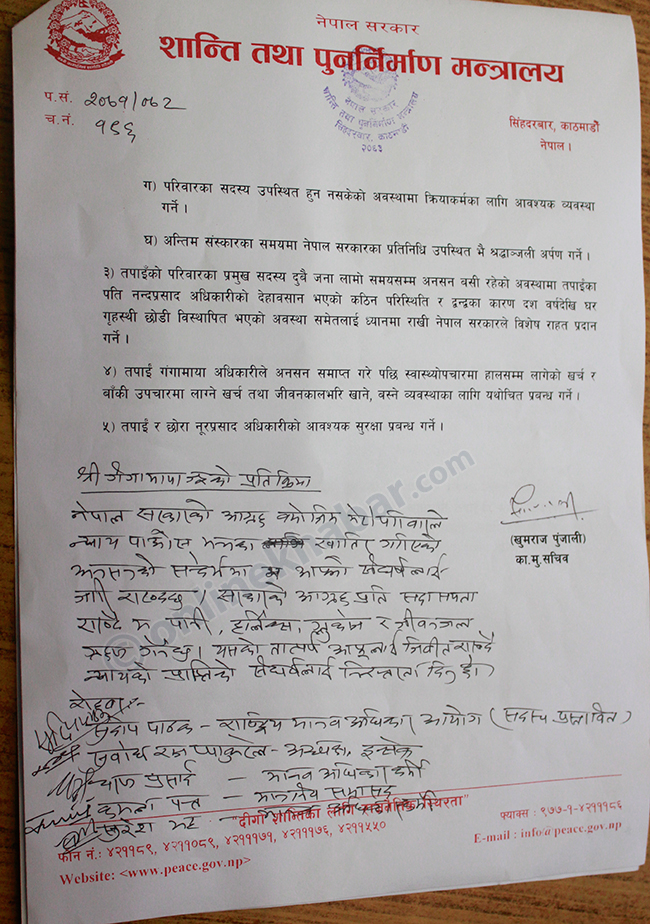 नेपाल सरकार
शान्ति तथा पुनर्निर्माण मन्त्रालय
प.सं. २०७१/०७२
च.नं. १९६
नेपाल सरकार
शान्ति तथा पुनर्निर्माण मन्त्रालय
सिंहदरबार, काठमाडौं
२०६३
सिंहदरबार, काठमाडौं
नेपाल ।
ग) परिवारका सदस्य उपस्थित हुन नसकेको अवस्थामा क्रियाकर्मका लागि आवश्यक व्यवस्था
गर्ने ।
घ) अन्तिम संस्कारका समयमा नेपाल सरकारका प्रतिनिधि उपस्थित भै श्रद्धाञ्जली अर्पण गर्ने ।
३) तपाईंको परिवारका प्रमुख सदस्य दुवै जना लामो समयसम्म अनसन बसी रहेको अवस्थामा तपाईका
पति नन्दप्रसाद अधिकारीको देहावसान भएको कठिन परिस्थिति र द्वन्द्वका कारण दश वर्षदेखि घर
गृहस्थी छोडी विस्थापित भएको अवस्था समेतलाई ध्यानमा राखी नेपाल सरकारले विशेष राहत प्रदान
गर्ने ।
४) तपाई गंगामाया अधिकारीले अनसन समाप्त गरे पछि स्वास्थ्योपचारमा हालसम्म लागेको खर्च र
बाँकी उपचारमा लाग्ने खर्च तथा जीवनकालभरि खाने, बस्ने व्यवस्थाका लागि यथोचित प्रवन्ध गर्ने ।
५) तपाई र छोरा नूरप्रसाद अधिकारीको आवश्यक सुरक्षा प्रवन्ध गर्ने ।
श्री गंगामाया को प्रतिक्रिया
नेपाल सरकारको आग्रह बमोजिम परिवारले
न्याय पाउनको खातिर गरिएको
अनसनको सन्दर्भमा संघर्षलाई
जारी राख्नेछु । सरकारको आग्रह प्रति सदासयता
राख्दै म पानी, हर्लिक्स, ग्लुकोज र जीवनजल
ग्रहण गर्नेछु । यसको तात्पर्य आफूलाई जिवीत राख्दै
न्यायको प्राप्तिको संघर्षलाई निरन्तरता दिनु हो ।
रोहवर :-
पाठक - राष्ट्रिय मानव अधिकार आयोग (सदस्य प्रस्तावित)
सुवोध राज प्याकुरेल - अध्यक्ष, इन्सेक
प्रसाद - मानव अधिकार कर्मी
कमला पन्त - माननीय सभासद
भट्ट -
(खुमराज पुंजाली)
का.मु.सचिव
"दीगो शान्तिका लागि सामाजिक स्थिरता"
फोन नं.: ४२११९८९, ४२११०८९, ४२१११७१, ४२१११७६, ४२११५५०
Website: <www.peace.gov.np>
फ्याक्स : ९७७-१-४२१११८६
E-mail : info@peace.gov.np
@onlinekhabar.com